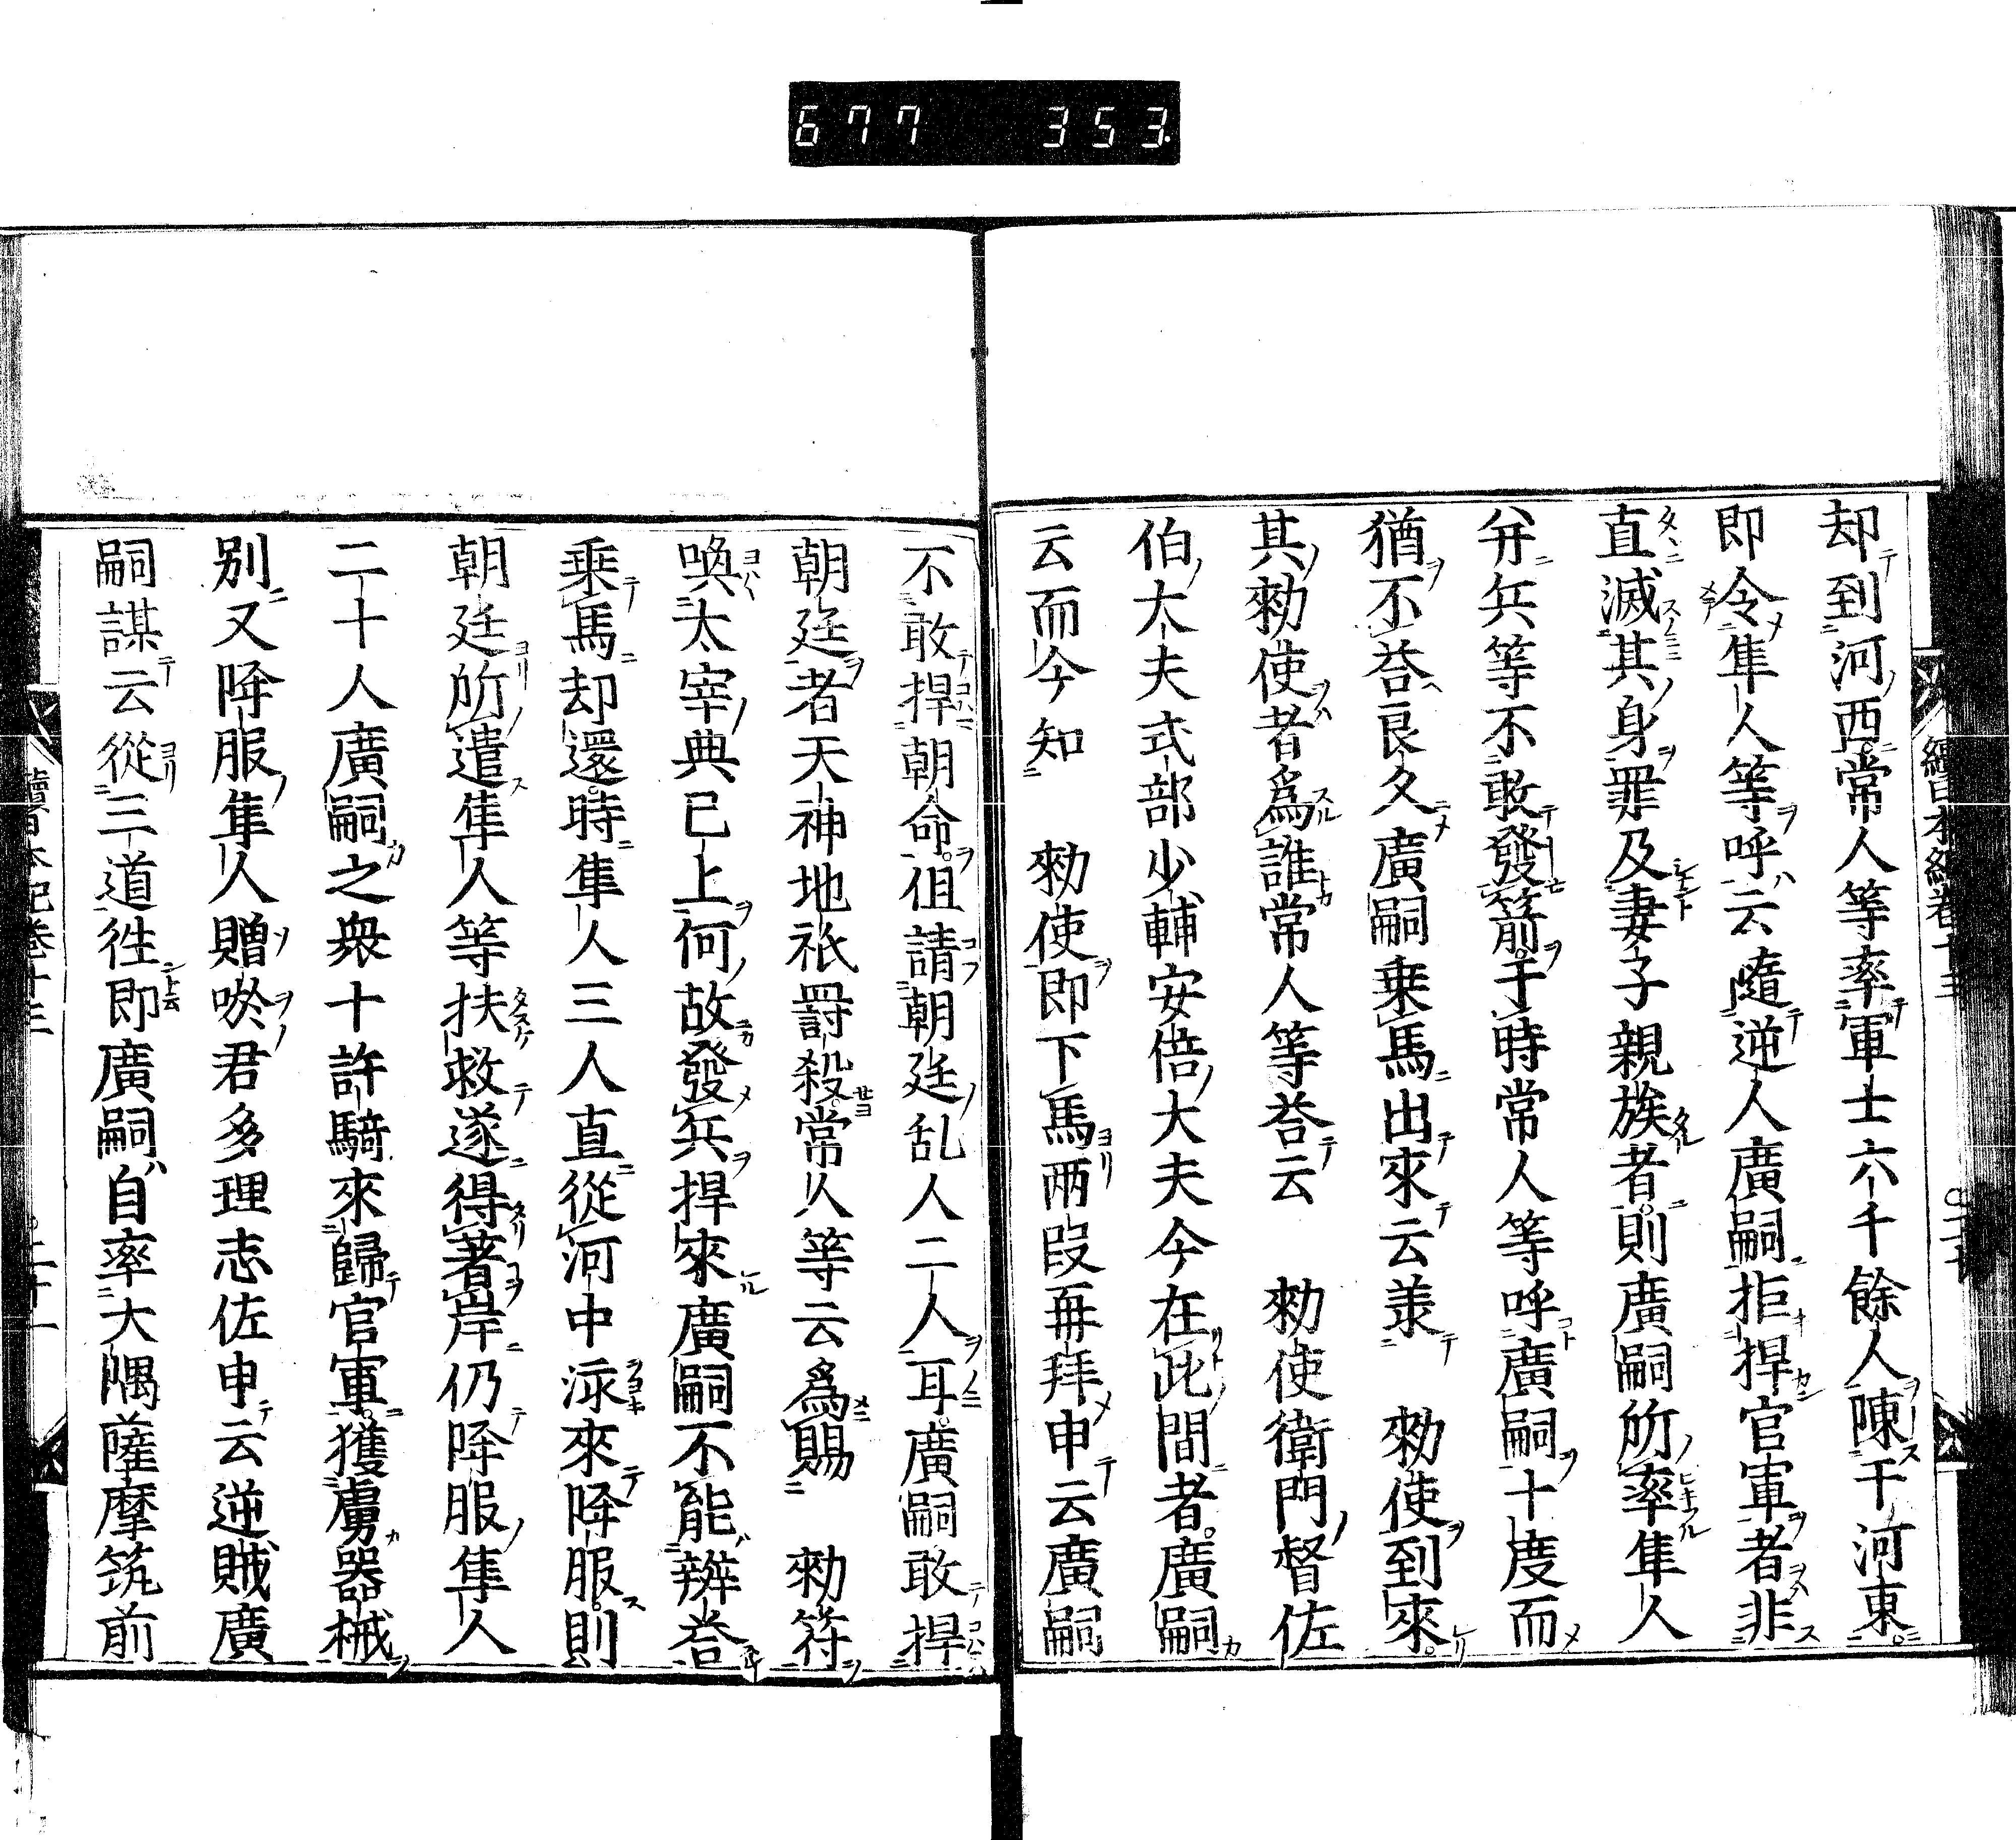 677 353
却到河西常人等率軍士六千餘人陳于河東
即令隼人等呼云隨逆人廣嗣拒捍官軍者非
直滅其身罪及妻子親族者則廣嗣所率隼人
弁兵等不敢發箭于時常人等呼廣嗣十度而
猶不荅良久廣嗣乗馬出來云羕 勑使到來
其勑使者爲誰常人等荅云 勑使衛門督佐
伯大夫式部少輔安倍大夫今在此間者廣嗣
云而今知 勑使即下馬两段再拜申云廣嗣
不敢捍朝命但請朝廷乱人二人耳廣嗣敢捍
朝廷者天神地祇罸殺常人等云爲賜 勑符
喚太宰典已上何故發兵捍來廣嗣不能辨荅
乗馬却還時隼人三人直從河中泳來降服則
朝廷所遣隼人等扶救遂得著岸仍降服隼人
二十人廣嗣之衆十許騎來歸官軍獲虜器械
別又降服隼人贈唹君多理志佐申云逆賊廣
嗣謀云從三道徃即廣嗣自率大隅薩摩筑前